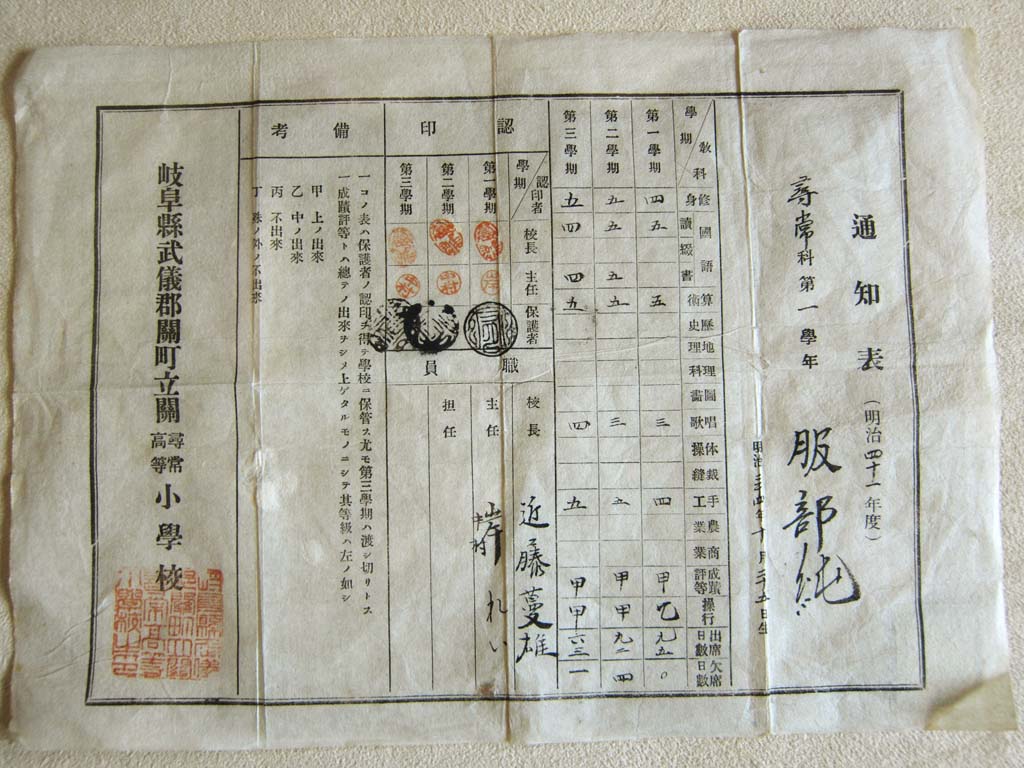 通知表(明治四十一年度)
尋常科第一學年 服部純
明治三四年十月二五日生
教科 學期
修身
國語 讀 綴 書
算術
歷史
地理
理科
圖畵
唱歌
体操
裁縫
手工
農業
商業
成蹟評等
操行
出席日數
欠席日數
第一學期 四 五 五 三 四 甲 乙 九五 〇
第二學期 五 五 五 五 三 五 甲 甲 九二 四
第三學期 五 四 四 五 四 五 甲 甲 六三 一
認印
認印者 學期
校長
主任
保護者
第一學期
第二學期
第三學期
職員
校長 近藤蔓雄
主任 岸れい
担任
備考
一コノ表ハ保護者ノ認印ヲ得テ學校ニ保管ス尤モ第三學期ハ渡シ切リトス
一成蹟評等トハ總テノ出來ヲシメ上ゲタルモノニシテ其等級ハ左ノ如シ
甲 上ノ出來
乙 中ノ出來
丙 不出來
丁 殊ノ外ノ不出來
岐阜縣武儀郡關町立關尋常高等小學校